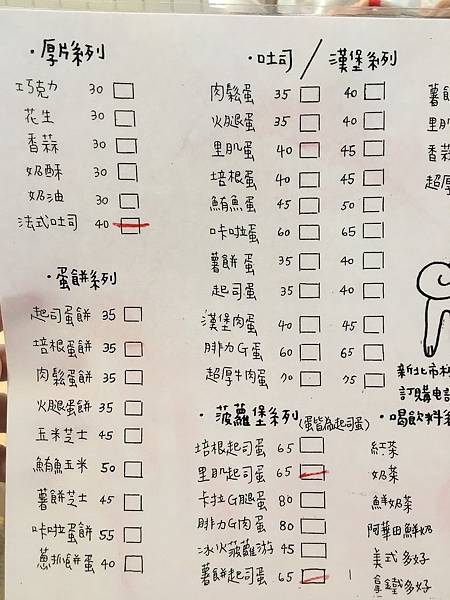 ·厚片系列
巧克力 30
花生 30
香蒜 30
奶酥 30
奶油 30
法式吐司 40
·蛋餅系列
起司蛋餅 35
培根蛋餅 35
肉鬆蛋餅 35
火腿蛋餅 35
玉米芝士 45
鮪魚玉米 50
薯餅芝士 45
咔啦蛋餅 55
蔥抓餅蛋 40
·吐司 / 漢堡系列
肉鬆蛋 35 40
火腿蛋 35 40
里肌蛋 40 45
培根蛋 40 45
鮪魚蛋 45 50
咔啦蛋 60 65
薯餅蛋 35 40
起司蛋 35 40
漢堡肉蛋 40 45
腓力G蛋 60 65
超厚牛肉蛋 70 75
·菠蘿堡系列(蛋皆為起司蛋)
培根起司蛋 65
里肌起司蛋 65
卡拉G腿蛋 80
腓力G肉蛋 80
冰火菠蘿游 45
薯餅起司蛋 65
薯餅
里肌
香蒜
超厚
新北市板
訂購電話
·喝飲料系
紅茶
奶茶
鮮奶茶
阿華田鮮奶
美式多好
拿鐵多好